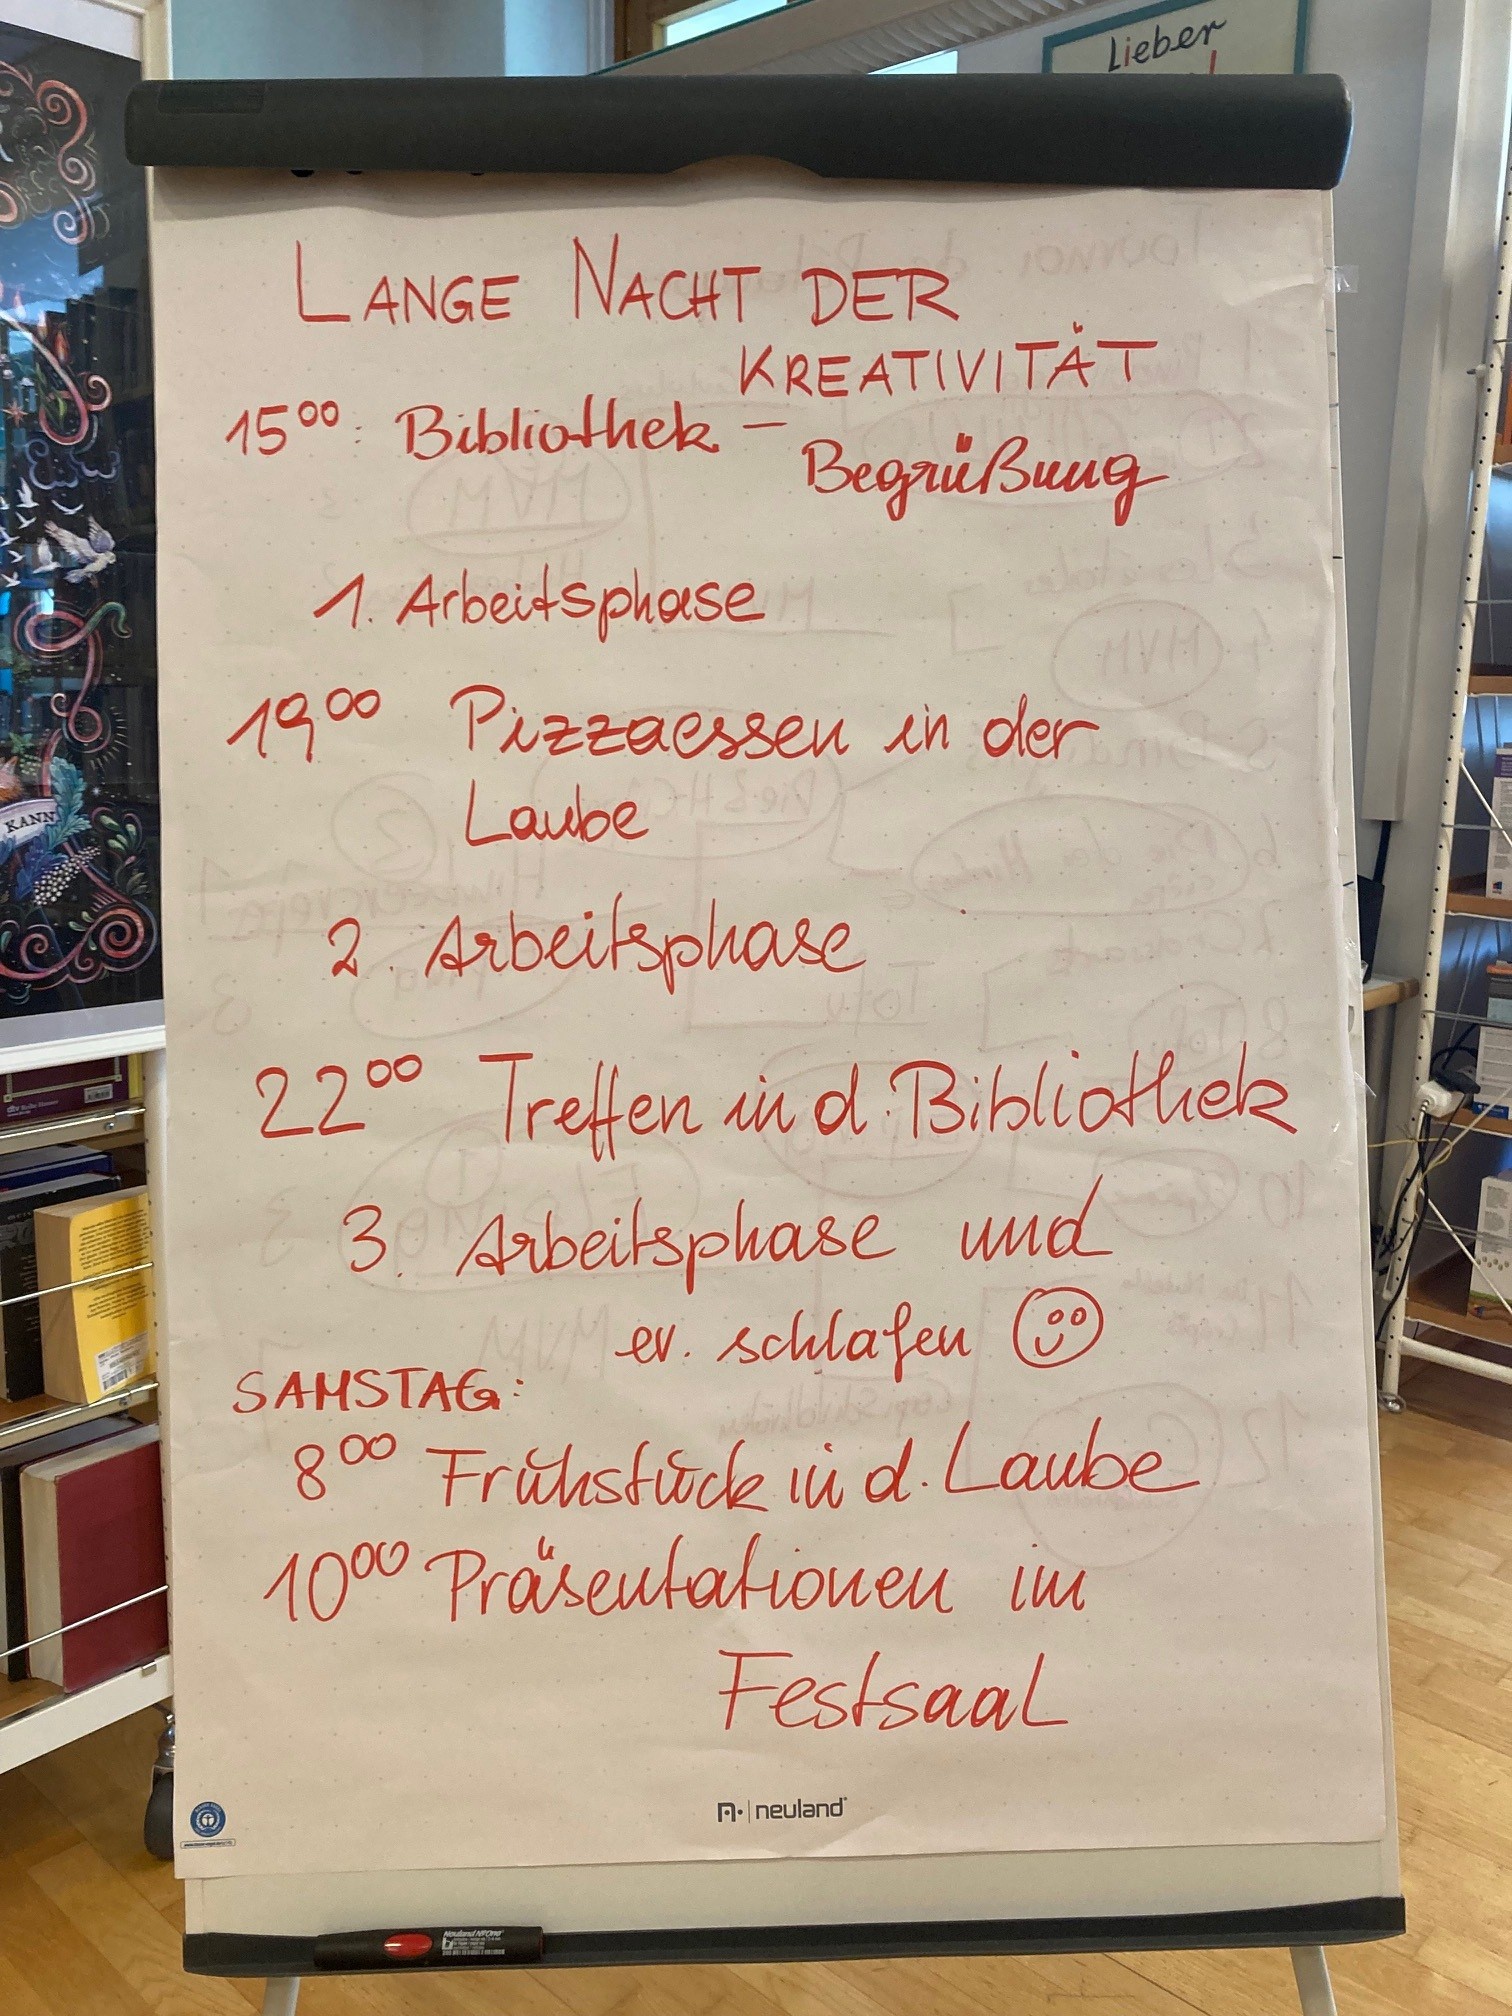 Lieber
LANGE NACHT DER
KREATIVITÄT
15⁰⁰: Bibliothek –
Begrüßung
1. Arbeitsphase
19⁰⁰ Pizzaessen in der
Laube
2. Arbeitsphase
22⁰⁰ Treffen in d. Bibliothek
3. Arbeitsphase und
ev. schlafen ☺
SAMSTAG:
8⁰⁰ Frühstück in d. Laube
10⁰⁰ Präsentationen im
Festsaal
neuland
KANN
Neuland NºOne